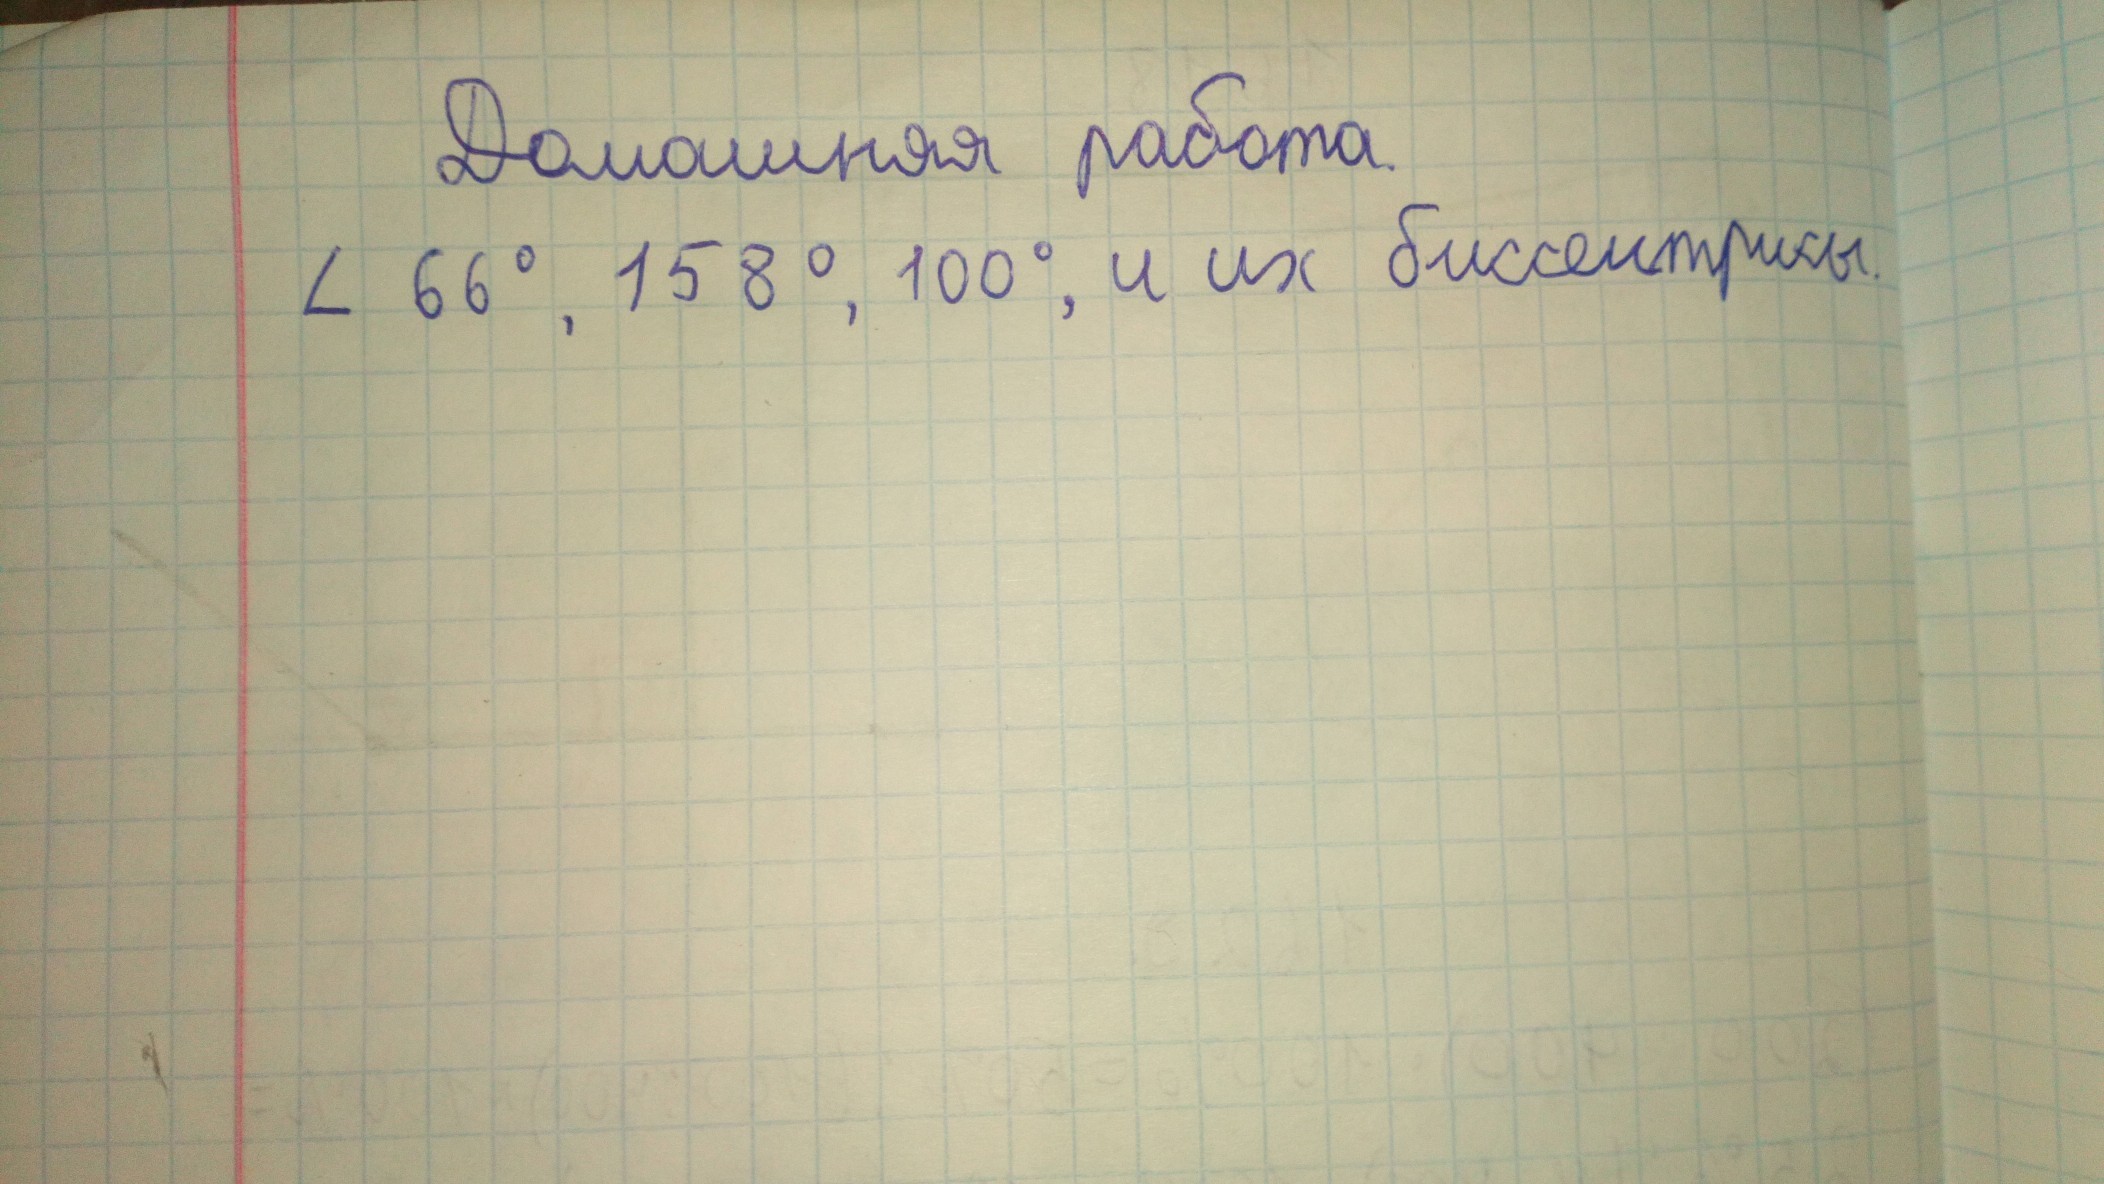 Домашняя работа.
∠ 66°, 158°, 100°, и их биссектрисы.